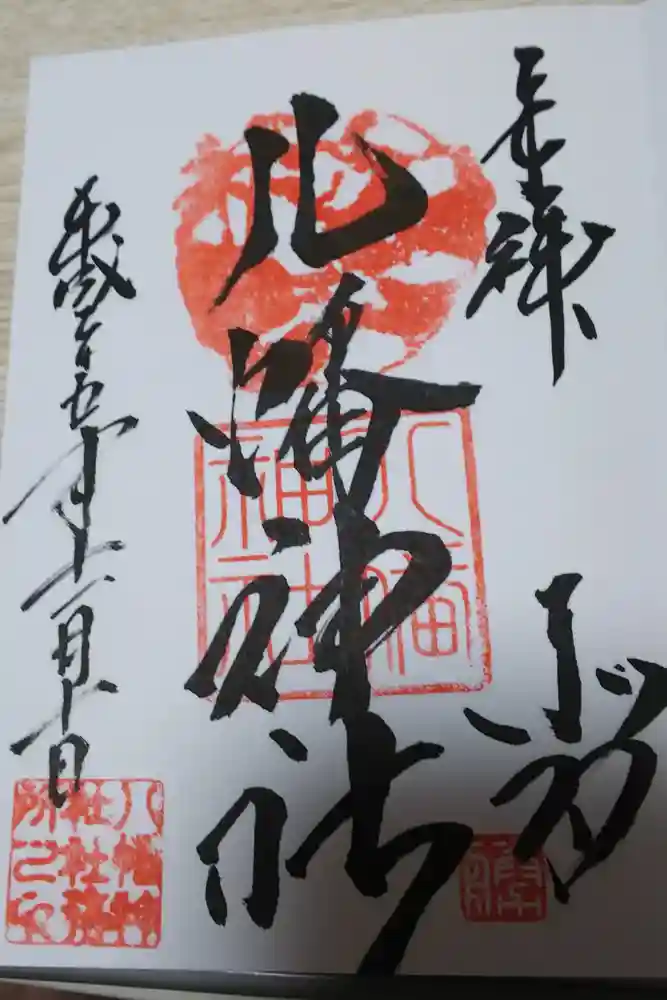 奉拝
八幡神社
平成二十五年十一月十日
八幡神社
八幡神
社社務
所之印